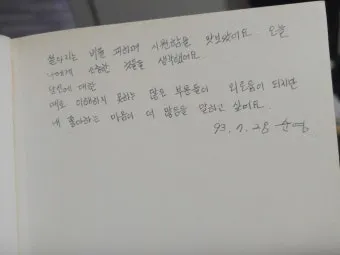 쏟아지는 비를 피하며 시원함을 맛보았어요. 오늘
나에게 소중한 것들을 생각했어요.
당신에 대한
때로 이해하지 못하는 많은 부분들이 외로움이 되지만
내 좋아하고 마음이 더 많음을 말하고 싶어요.
93. 7. 28